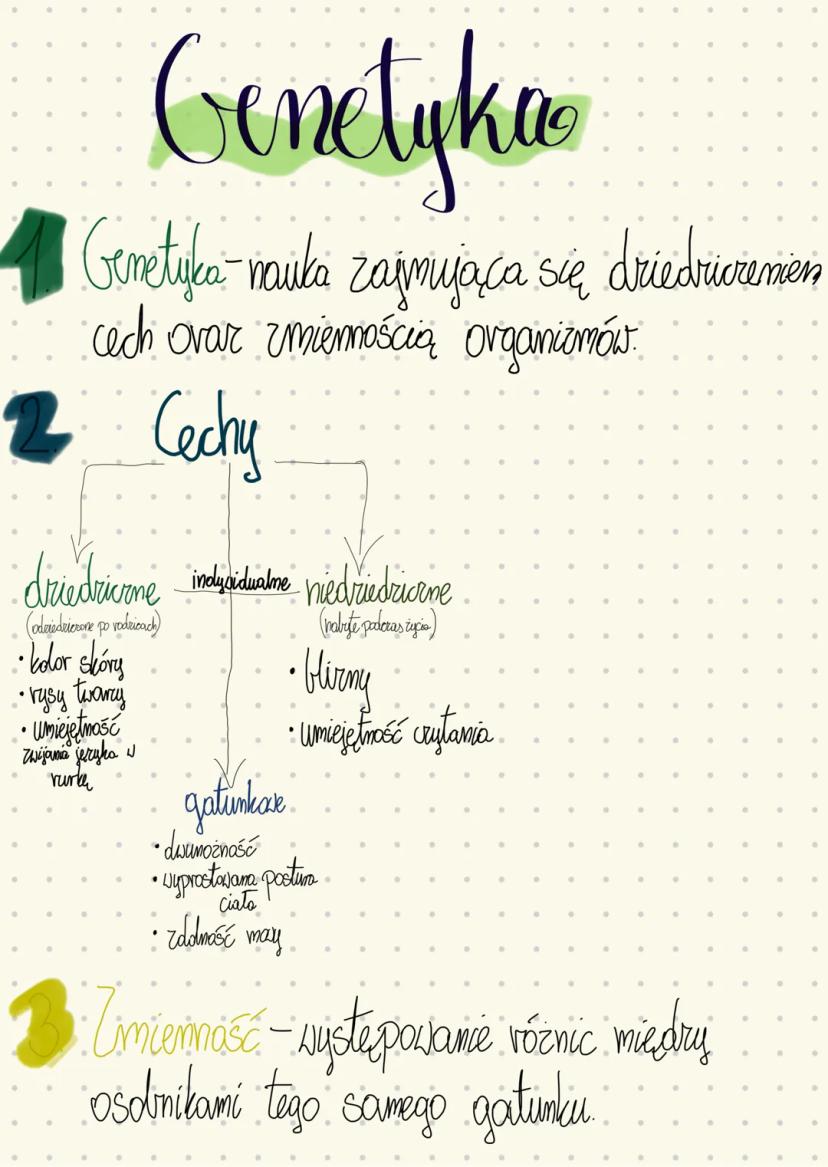 Genetyka
1. Genetyka - nauka zajmująca się dziedziczeniem
cech oraz zmiennością organizmów.
2. Cechy
dziedziczne
(odziedziczone po rodzicach)
• kolor skóry
• rysy twarzy
• umiejętność
zwijania języka w
rurkę
indywidualne
niedziedziczne
(nabyte podczas życia)
• blizny
• umiejętność czytania
gatunkowe
• dwunożność
• wyprostowana postura
ciała
• zdolność mowy
3 Zmienność - występowanie różnic między
osobnikami tego samego gatunku.